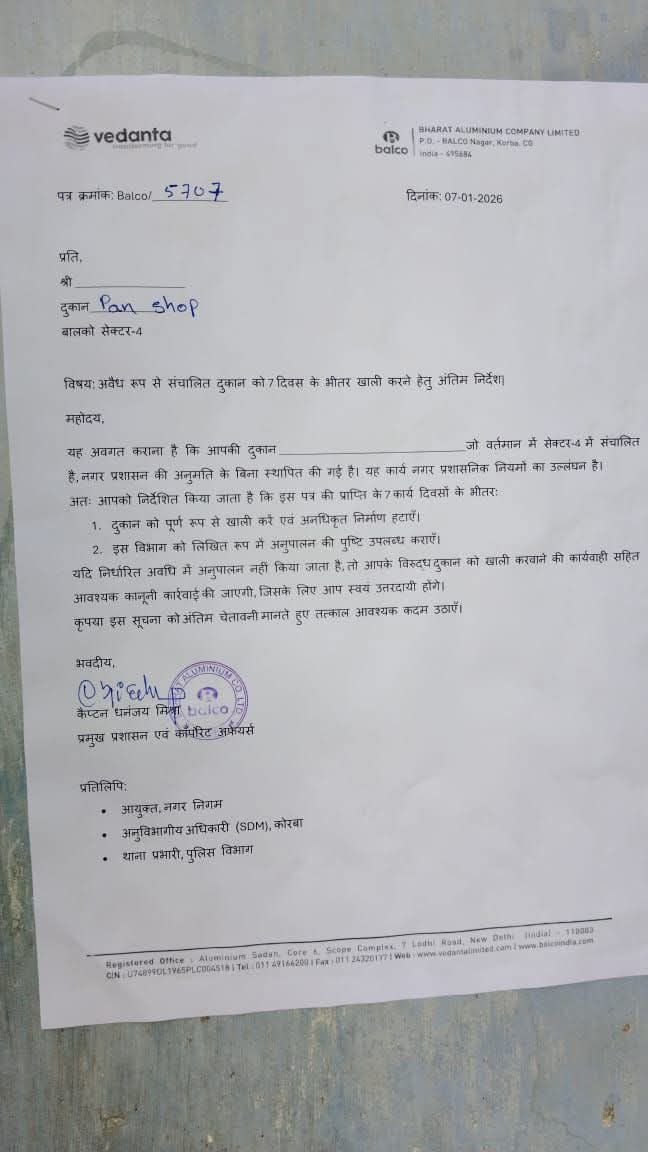 vedanta
transforming for good
balco
BHARAT ALUMINIUM COMPANY LIMITED
P.O. - BALCO Nagar, Korba, CG
India - 495684
पत्र क्रमांक: Balco/ 5707
दिनांक: 07-01-2026
प्रति,
श्री
दुकान Pan shop
बालको सेक्टर-4
विषय: अवैध रूप से संचालित दुकान को 7 दिवस के भीतर खाली करने हेतु अंतिम निर्देश|
महोदय,
यह अवगत कराना है कि आपकी दुकान ________ जो वर्तमान में सेक्टर-4 में संचालित
है, नगर प्रशासन की अनुमति के बिना स्थापित की गई है। यह कार्य नगर प्रशासनिक नियमों का उल्लंघन है।
अतः आपको निर्देशित किया जाता है कि इस पत्र की प्राप्ति के 7 कार्य दिवसों के भीतर:
1. दुकान को पूर्ण रूप से खाली करें एवं अनधिकृत निर्माण हटाएँ।
2. इस विभाग को लिखित रूप में अनुपालन की पुष्टि उपलब्ध कराएँ।
यदि निर्धारित अवधि में अनुपालन नहीं किया जाता है, तो आपके विरुद्ध दुकान को खाली करवाने की कार्यवाही सहित
आवश्यक कानूनी कार्रवाई की जाएगी, जिसके लिए आप स्वयं उत्तरदायी होंगे।
कृपया इस सूचना को अंतिम चेतावनी मानते हुए तत्काल आवश्यक कदम उठाएँ।
भवदीय,
ALUMINIUM CO. LTD.
balco
कैप्टन धनंजय मिश्रा
प्रमुख प्रशासन एवं कॉर्पोरेट अफेयर्स
प्रतिलिपि:
• आयुक्त, नगर निगम
• अनुविभागीय अधिकारी (SDM), कोरबा
• थाना प्रभारी, पुलिस विभाग
Registered Office : Aluminium Sadan, Core 6, Scope Complex, 7 Lodhi Road, New Delhi (India) - 110003
CIN : U74899DL1965PLC004518 | Tel : 011 49166200 | Fax : 011 24320177 | Web : www.vedantalimited.com | www.balcoindia.com